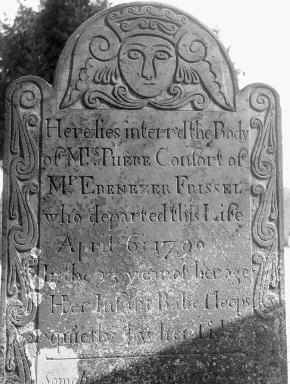 Here lies interr'd the Body
of Mrs. PHEBE Consort of
Mr EBENEZER FRISSEL
who departed this Life
April 6: 1790
In the 23 year of her age
Her Infant Babe sleeps
quietly by her